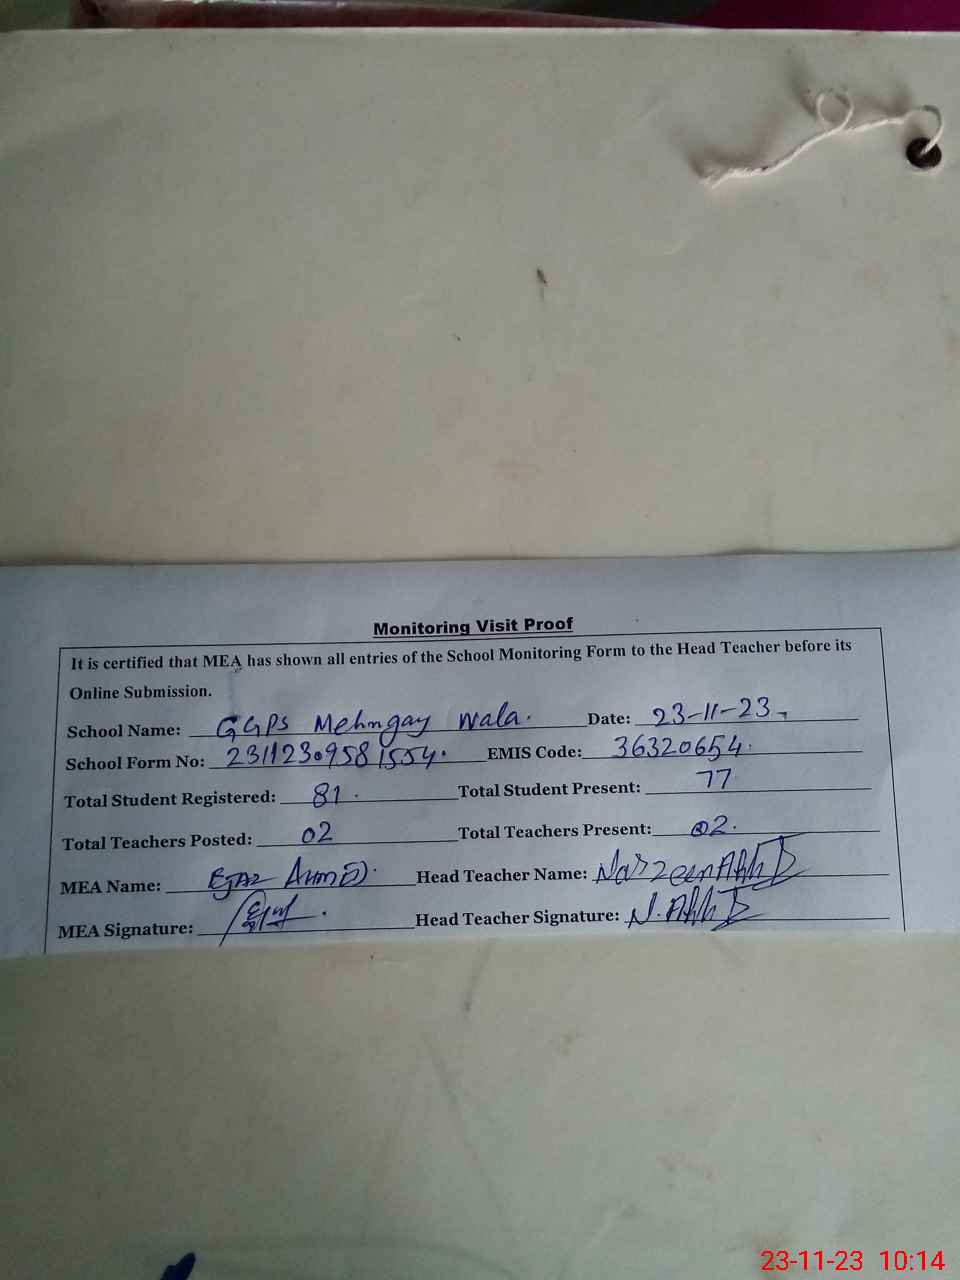 Monitoring Visit Proof
It is certified that MEA has shown all entries of the School Monitoring Form to the Head Teacher before its
Online Submission.
School Name: GGPS Mehngay wala. Date: 23-11-23
School Form No: 23112309581554. EMIS Code: 36320654.
Total Student Registered: 81. Total Student Present: 77
Total Teachers Posted: 02 Total Teachers Present: 02.
MEA Name: EJAZ Head Teacher Name:
MEA Signature: Head Teacher Signature:
23-11-23 10:14